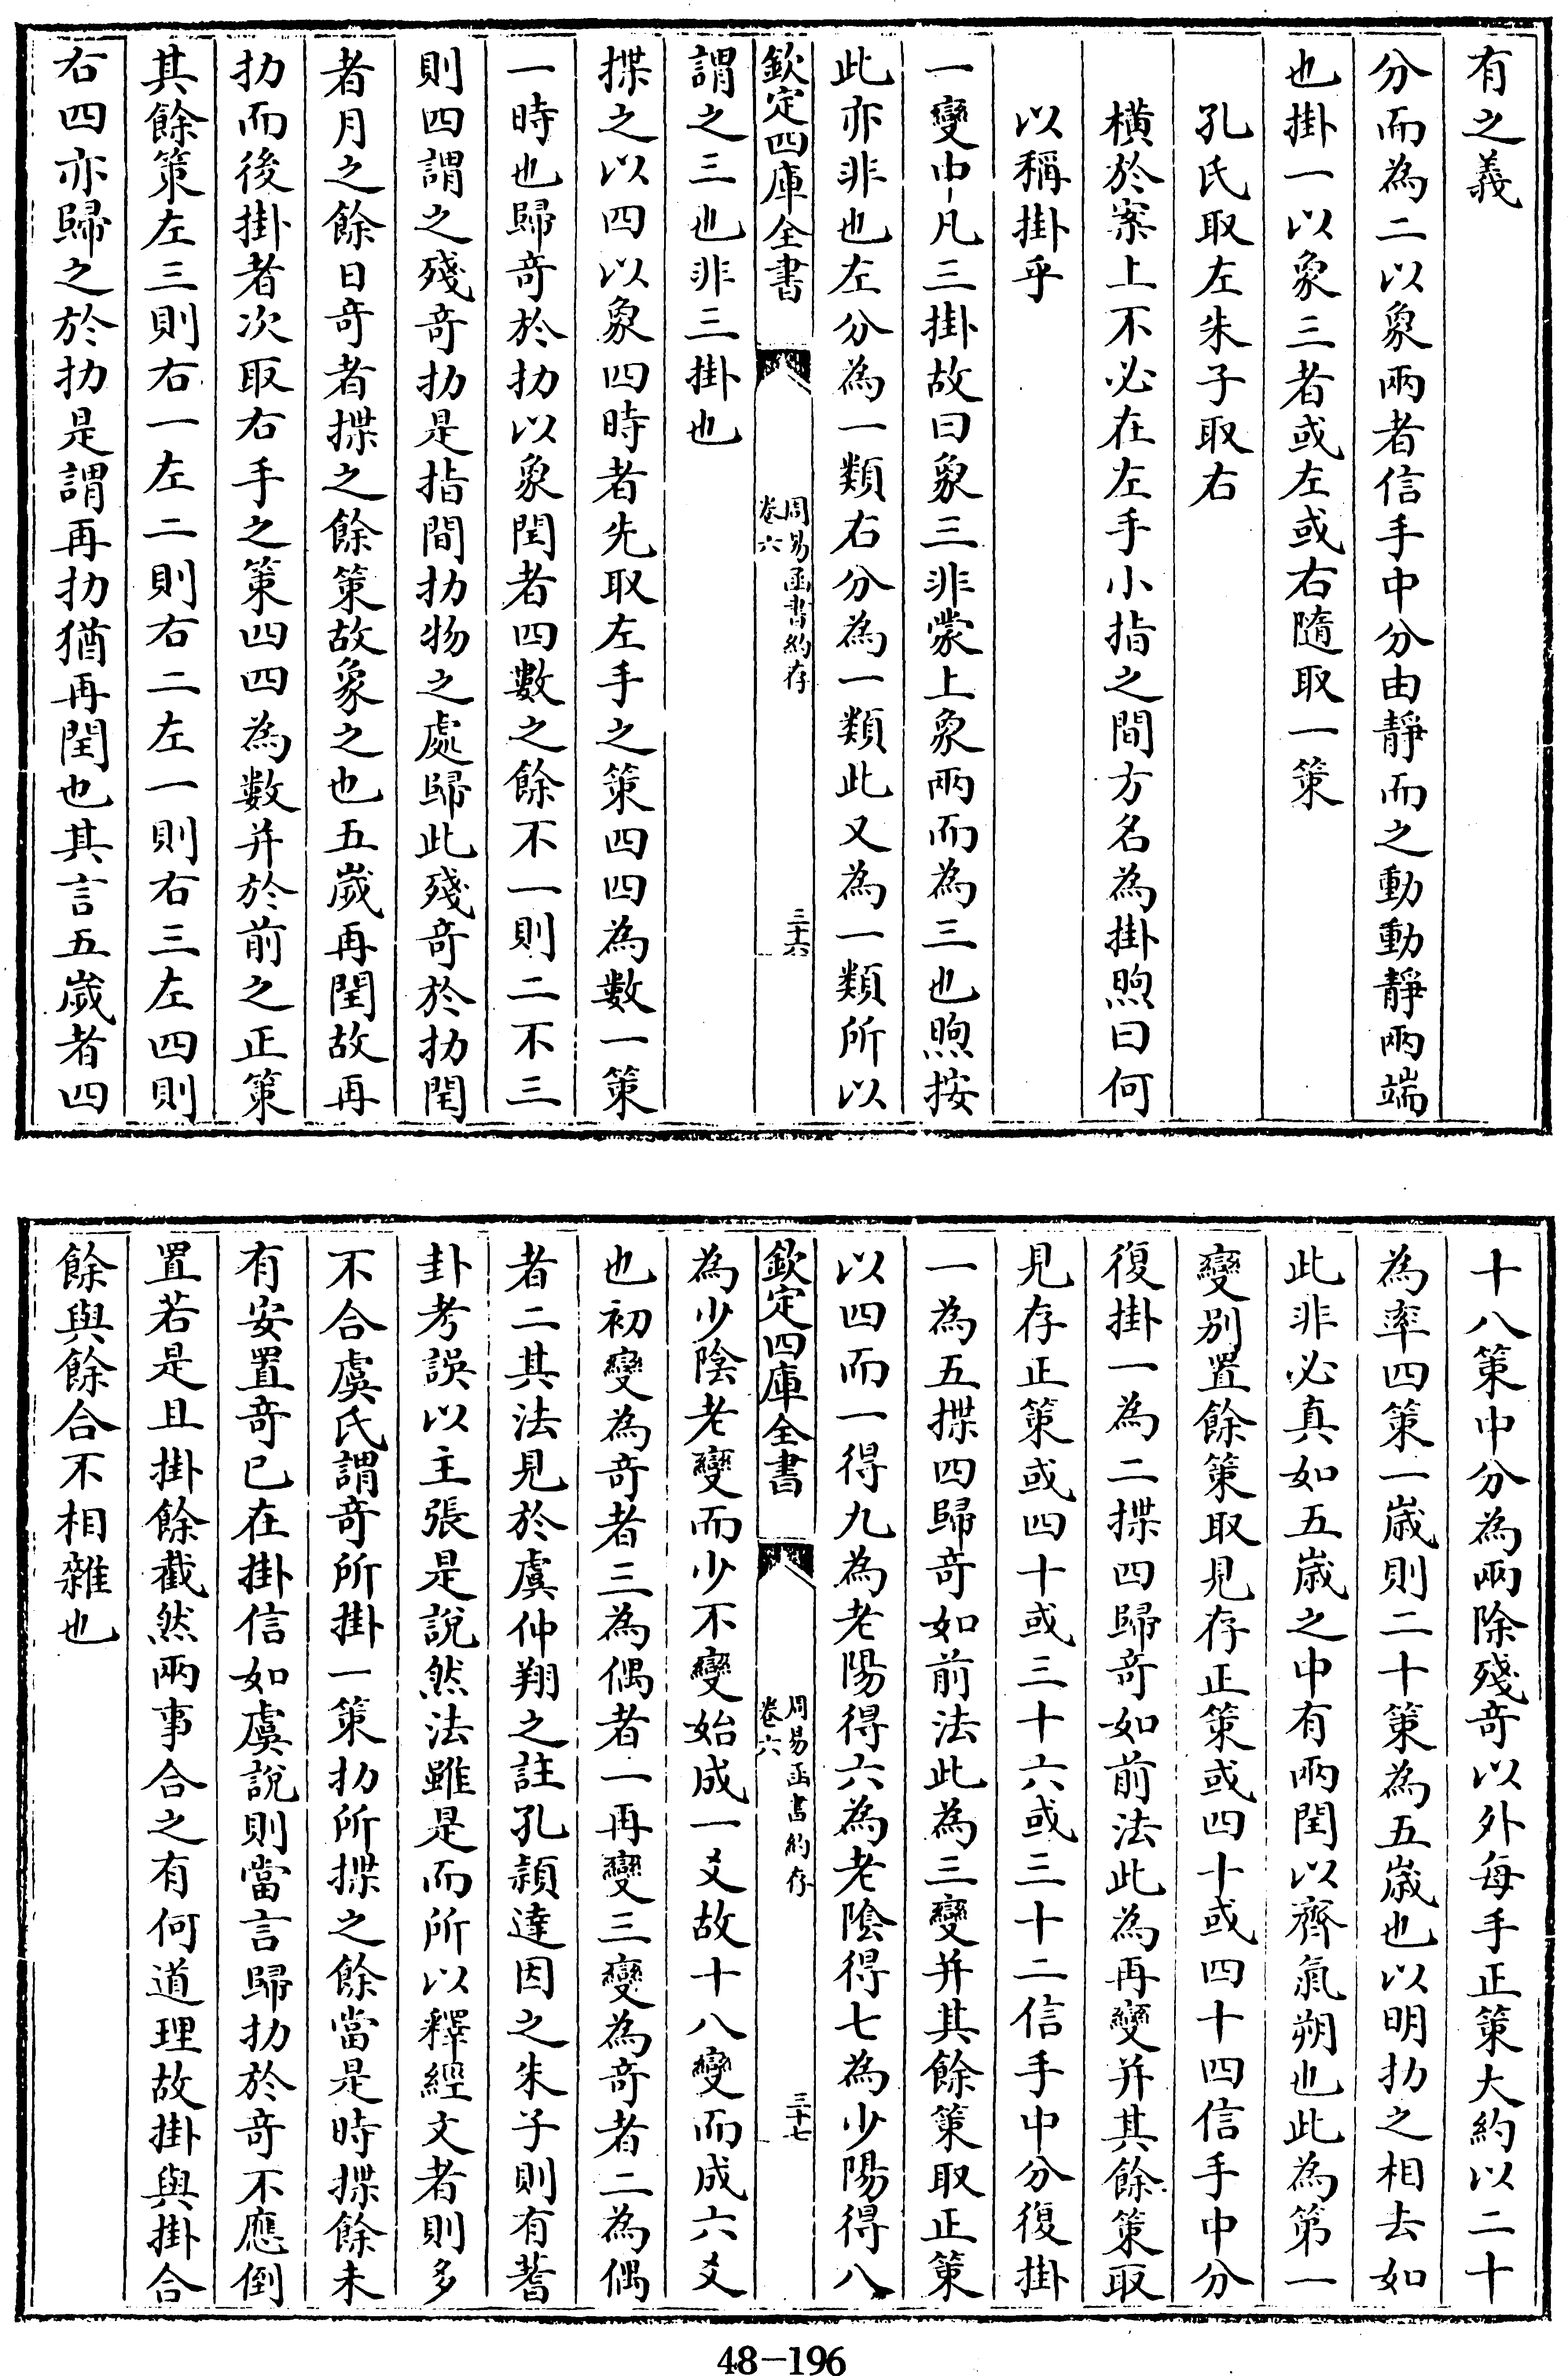 有之義
分而為二以象兩者信手中分由靜而之動動靜兩端
也掛一以象三者或左或右隨取一策
孔氏取左朱子取右
橫於案上不必在左手小指之間方名為掛煦曰何
以稱掛乎
一變中凡三掛故曰象三非蒙上象兩而為三也煦按
此亦非也左分為一類右分為一類此又為一類所以
欽定四庫全書
周易函書約存
卷六
三十六
謂之三也非三掛也
揲之以四以象四時者先取左手之策四四為數一策
一時也歸奇於扐以象閏者四數之餘不一則二不三
則四謂之殘奇扐是指間扐物之處歸此殘奇於扐閏
者月之餘日奇者揲之餘策故象之也五歲再閏故再
扐而後掛者次取右手之策四四為數并於前之正策
其餘策左三則右一左二則右二左一則右三左四則
右四亦歸之於扐是謂再扐猶再閏也其言五歲者四
十八策中分為兩除殘奇以外每手正策大約以二十
為率四策一歲則二十策為五歲也以明扐之相去如
此非必真如五歲之中有兩閏以齊氣朔也此為第一
變別置餘策取見存正策或四十或四十四信手中分
復掛一為二揲四歸奇如前法此為再變并其餘策取
見存正策或四十或三十六或三十二信手中分復掛
一為五揲四歸奇如前法此為三變并其餘策取正策
以四而一得九為老陽得六為老陰得七為少陽得八
欽定四庫全書
周易函書約存
卷六
三十七
為少陰老變而少不變始成一爻故十八變而成六爻
也初變為奇者三為偶者一再變三變為奇者二為偶
者二其法見於虞仲翔之註孔穎達因之朱子則有蓍
卦考誤以主張是說然法雖是而所以釋經文者則多
不合虞氏謂奇所掛一策扐所揲之餘當是時揲餘未
有安置奇已在掛信如虞說則當言歸扐於奇不應倒
置若是且掛餘截然兩事合之有何道理故掛與掛合
餘與餘合不相雜也
48-196